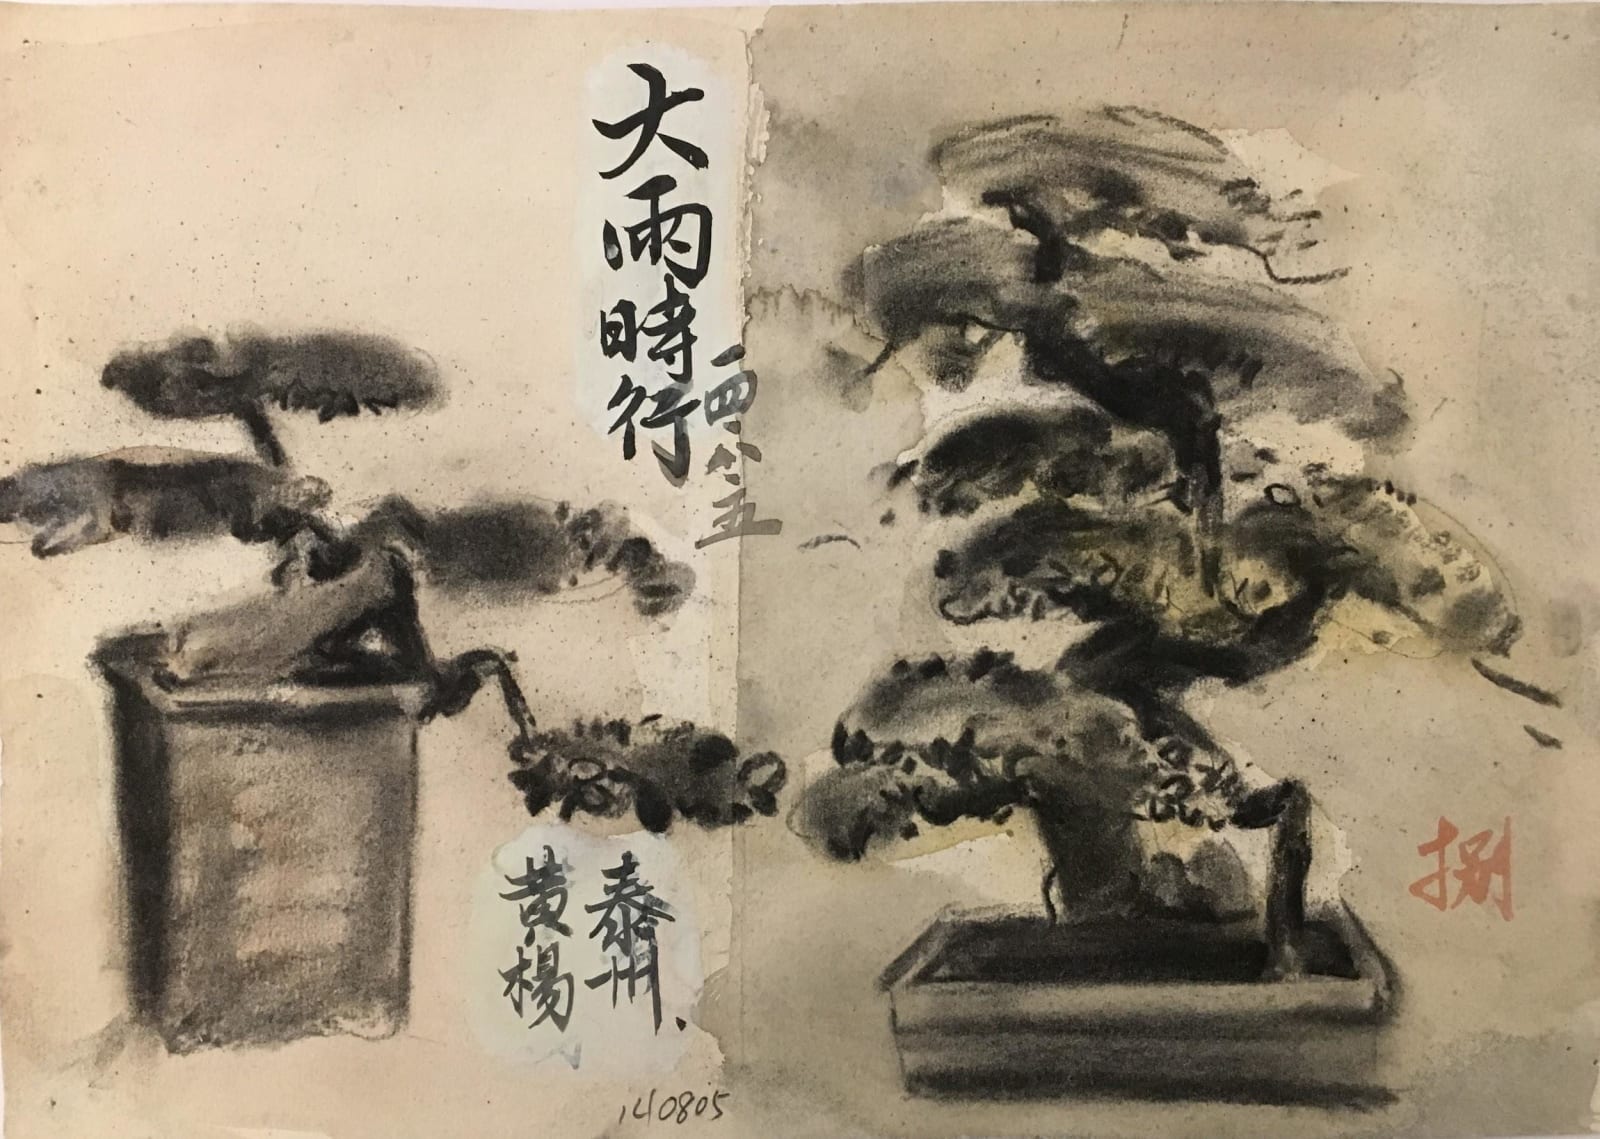 大雨時行
一四八·五
泰州
黄楊
140805
捌